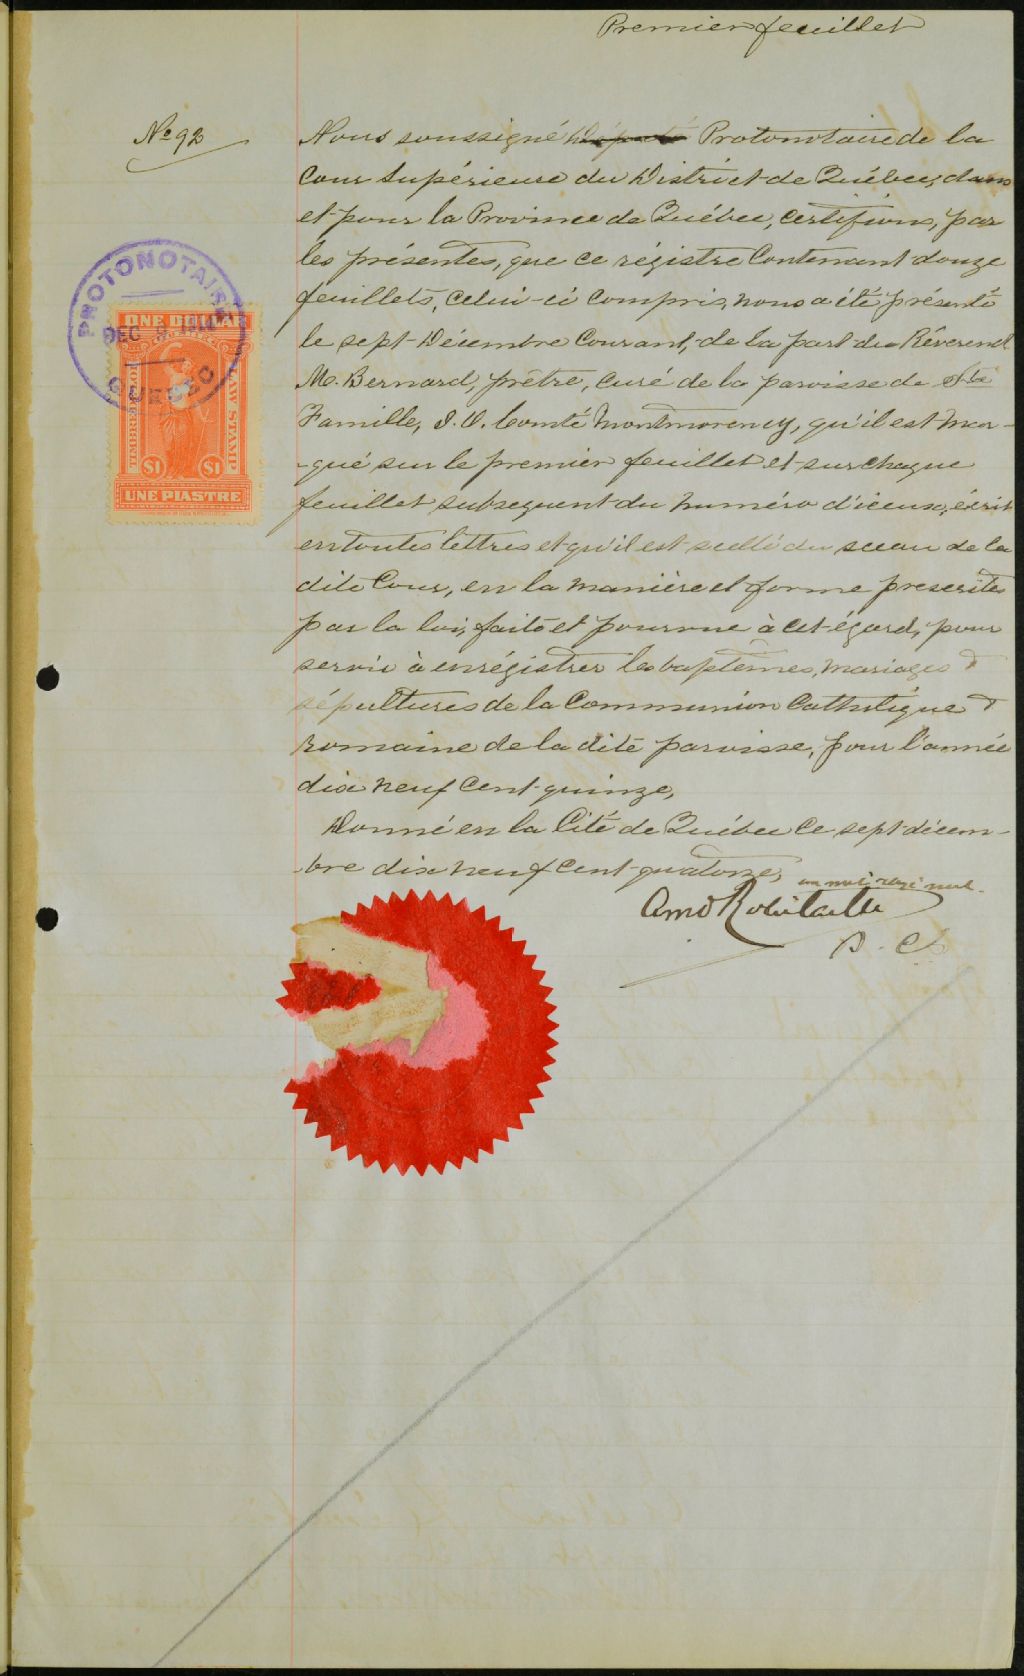 Premier feuillet
No 92
Nous soussigné Député Protonotaire de la
Cour Supérieure du District de Québec, dans
et pour la Province de Québec, certifions, par
les présentes, que ce régistre contenant douze
feuillets, celui-ci compris, nous a été présenté
le sept Décembre Courant, de la part du Révérend
M. Bernard, prêtre, curé de la paroisse de Ste
Famille, I. O. Comté Montmorency, qu'il est mar-
-qué sur le premier feuillet et sur chaque
feuillet subsequent du numéro d'iceux, écrit
en toutes lettres et qu'il est scellé du sceau de la
dite Cour, en la manière et forme prescrites
par la loi, faite et pourvue à cet égard, pour
servir à enrégistrer les baptêmes, mariages &
sépultures de la Communion Catholique &
Romaine de la dite paroisse, pour l'année
dix neuf cent quinze,
Donné en la Cité de Québec ce sept décem-
-bre dix neuf cent quatorze,
un mot rayé nul.
Amd Robitaille
PROTONOTAIRE
DEC 1914
QUEBEC
ONE DOLLAR
TIMBRE LAW STAMP
$1 $1
UNE PIASTRE